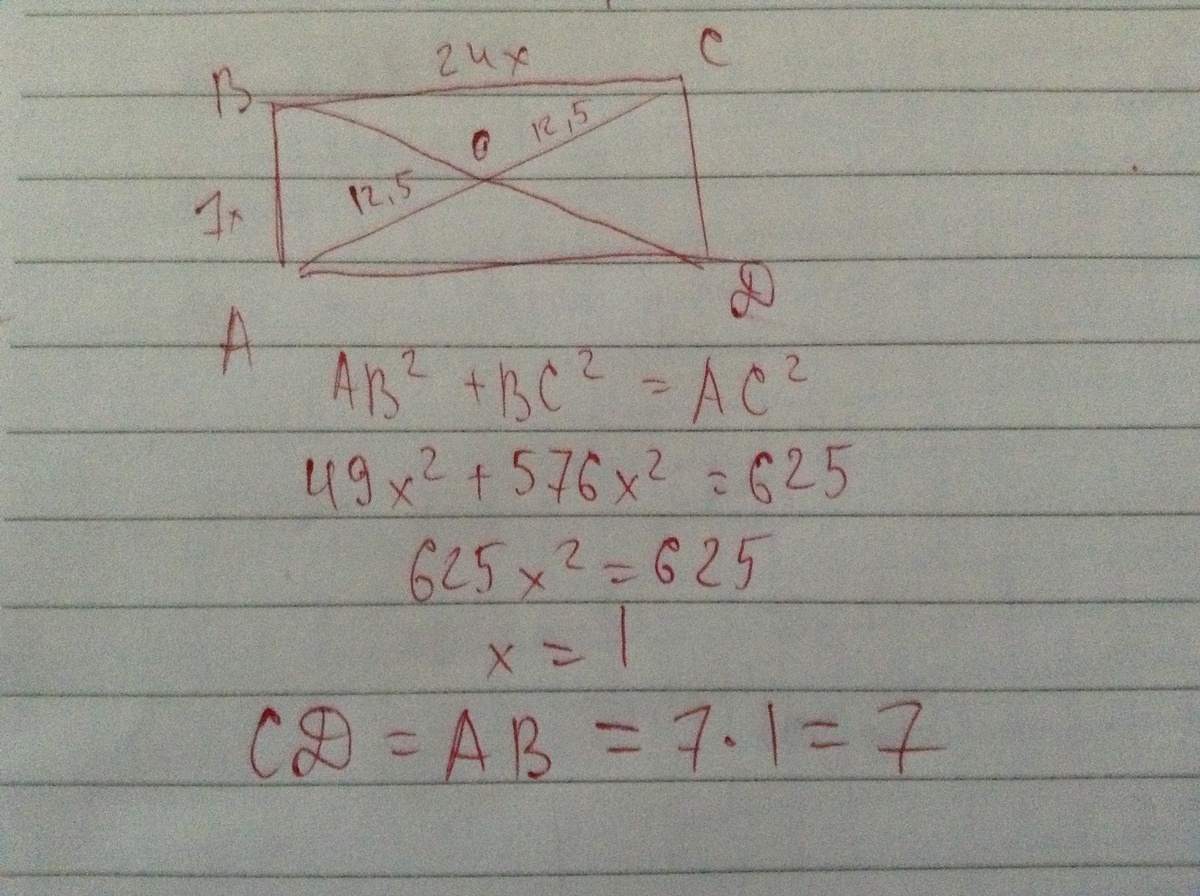 24x
C
B
O
12,5
12,5
7x
D
A
AB² + BC² = AC²
49x² + 576x² = 625
625x² = 625
x = 1
CD = AB = 7·1 = 7